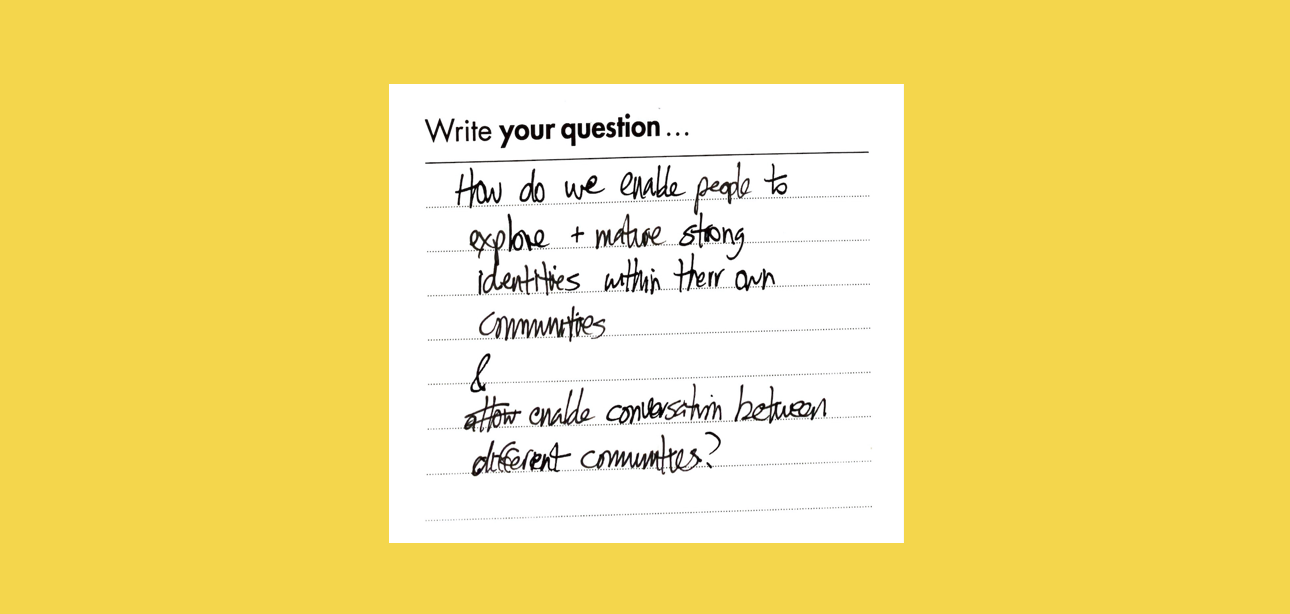 Write your question...
How do we enable people to
explore + mature strong
identities within their own
communities
&
allow enable conversation between
different communities?